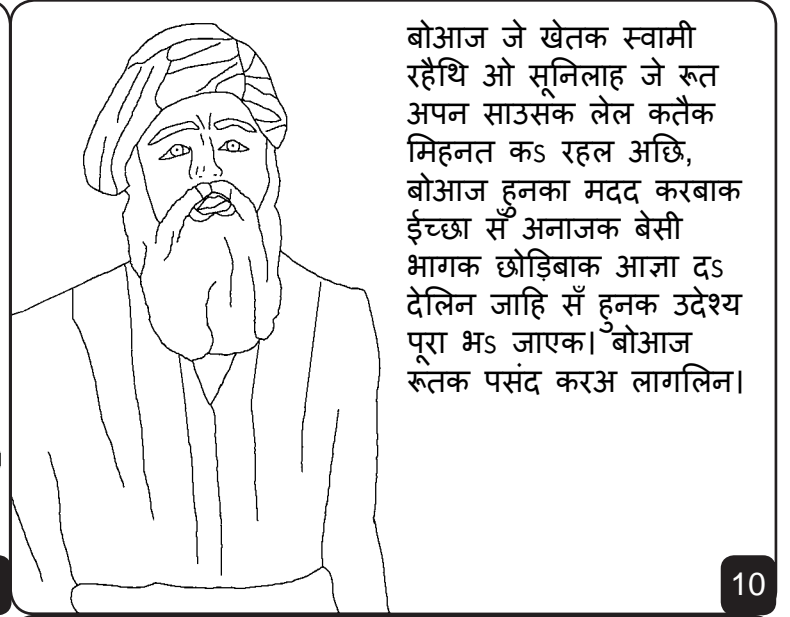 बोआज जे खेतक स्वामी
रहैथि ओ सूनिलाह जे रूत
अपन साउसक लेल कतैक
मिहनत कऽ रहल अछि,
बोआज हुनका मदद करबाक
ईच्छा सँ अनाजक बेसी
भागक छोड़िबाक आज्ञा दऽ
देलिन जाहि सँ हुनक उदेश्य
पूरा भऽ जाएक। बोआज
रूतक पसंद करअ लागलिन।
10